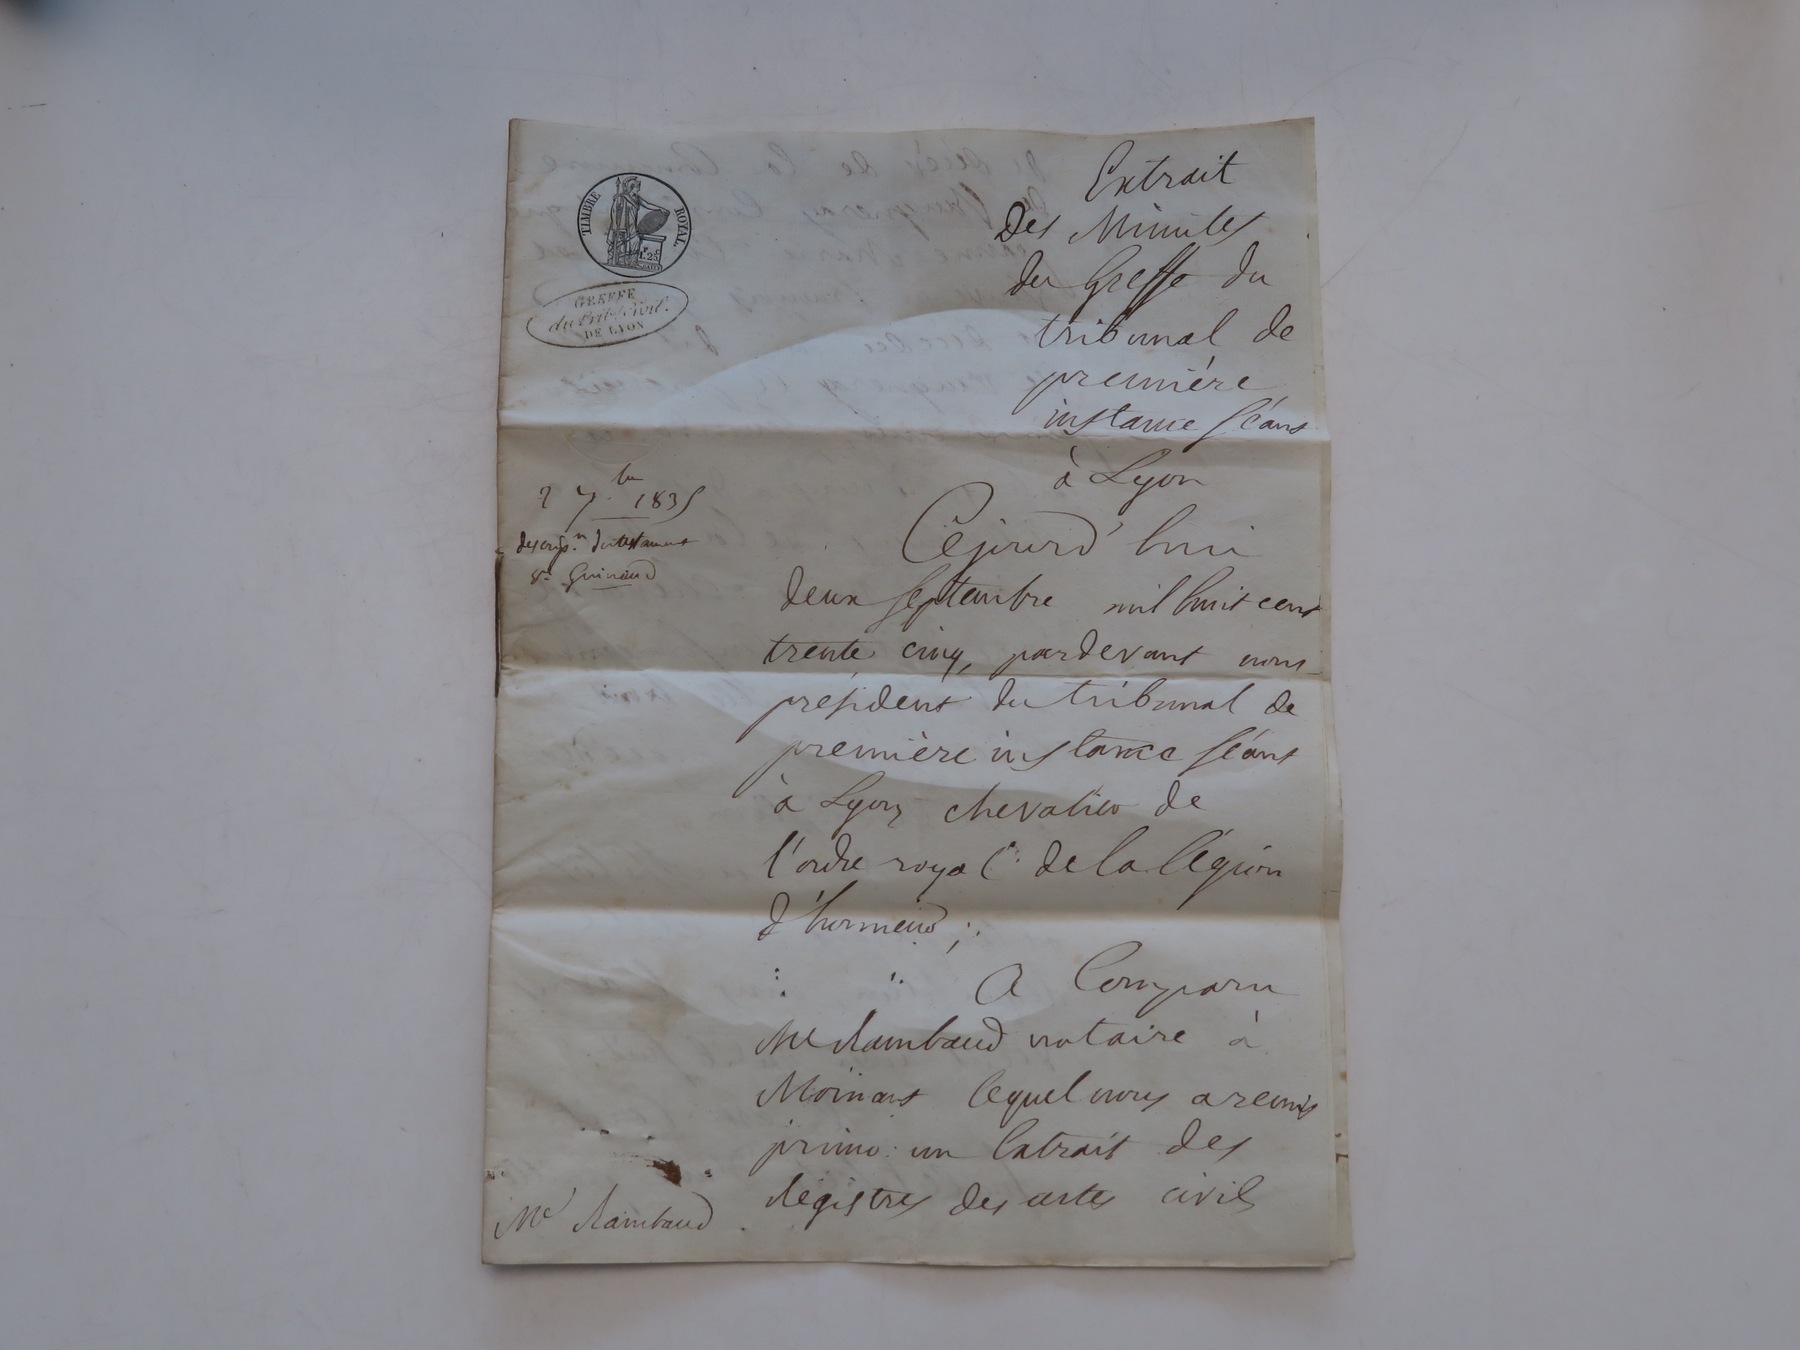 TIMBRE ROYAL
1.25
GREFFE
du Trib. Civil.
DE LYON
Extrait
des Minutes
du Greffe du
tribunal de
première
instance séant
à Lyon
2 7.bre 1835
descrip.n du testament
Sr Guinand
Cejourd'hui
deux septembre mil huit cent
trente cinq, pardevant nous
président du tribunal de
première instance séant
à Lyon chevalier de
l'ordre royal de la légion
d'honneur;
A Comparu
Me Rambaud notaire à
Mornant lequel nous a remis
primo: un Extrait des
Régistres des actes civils
Me Rambaud